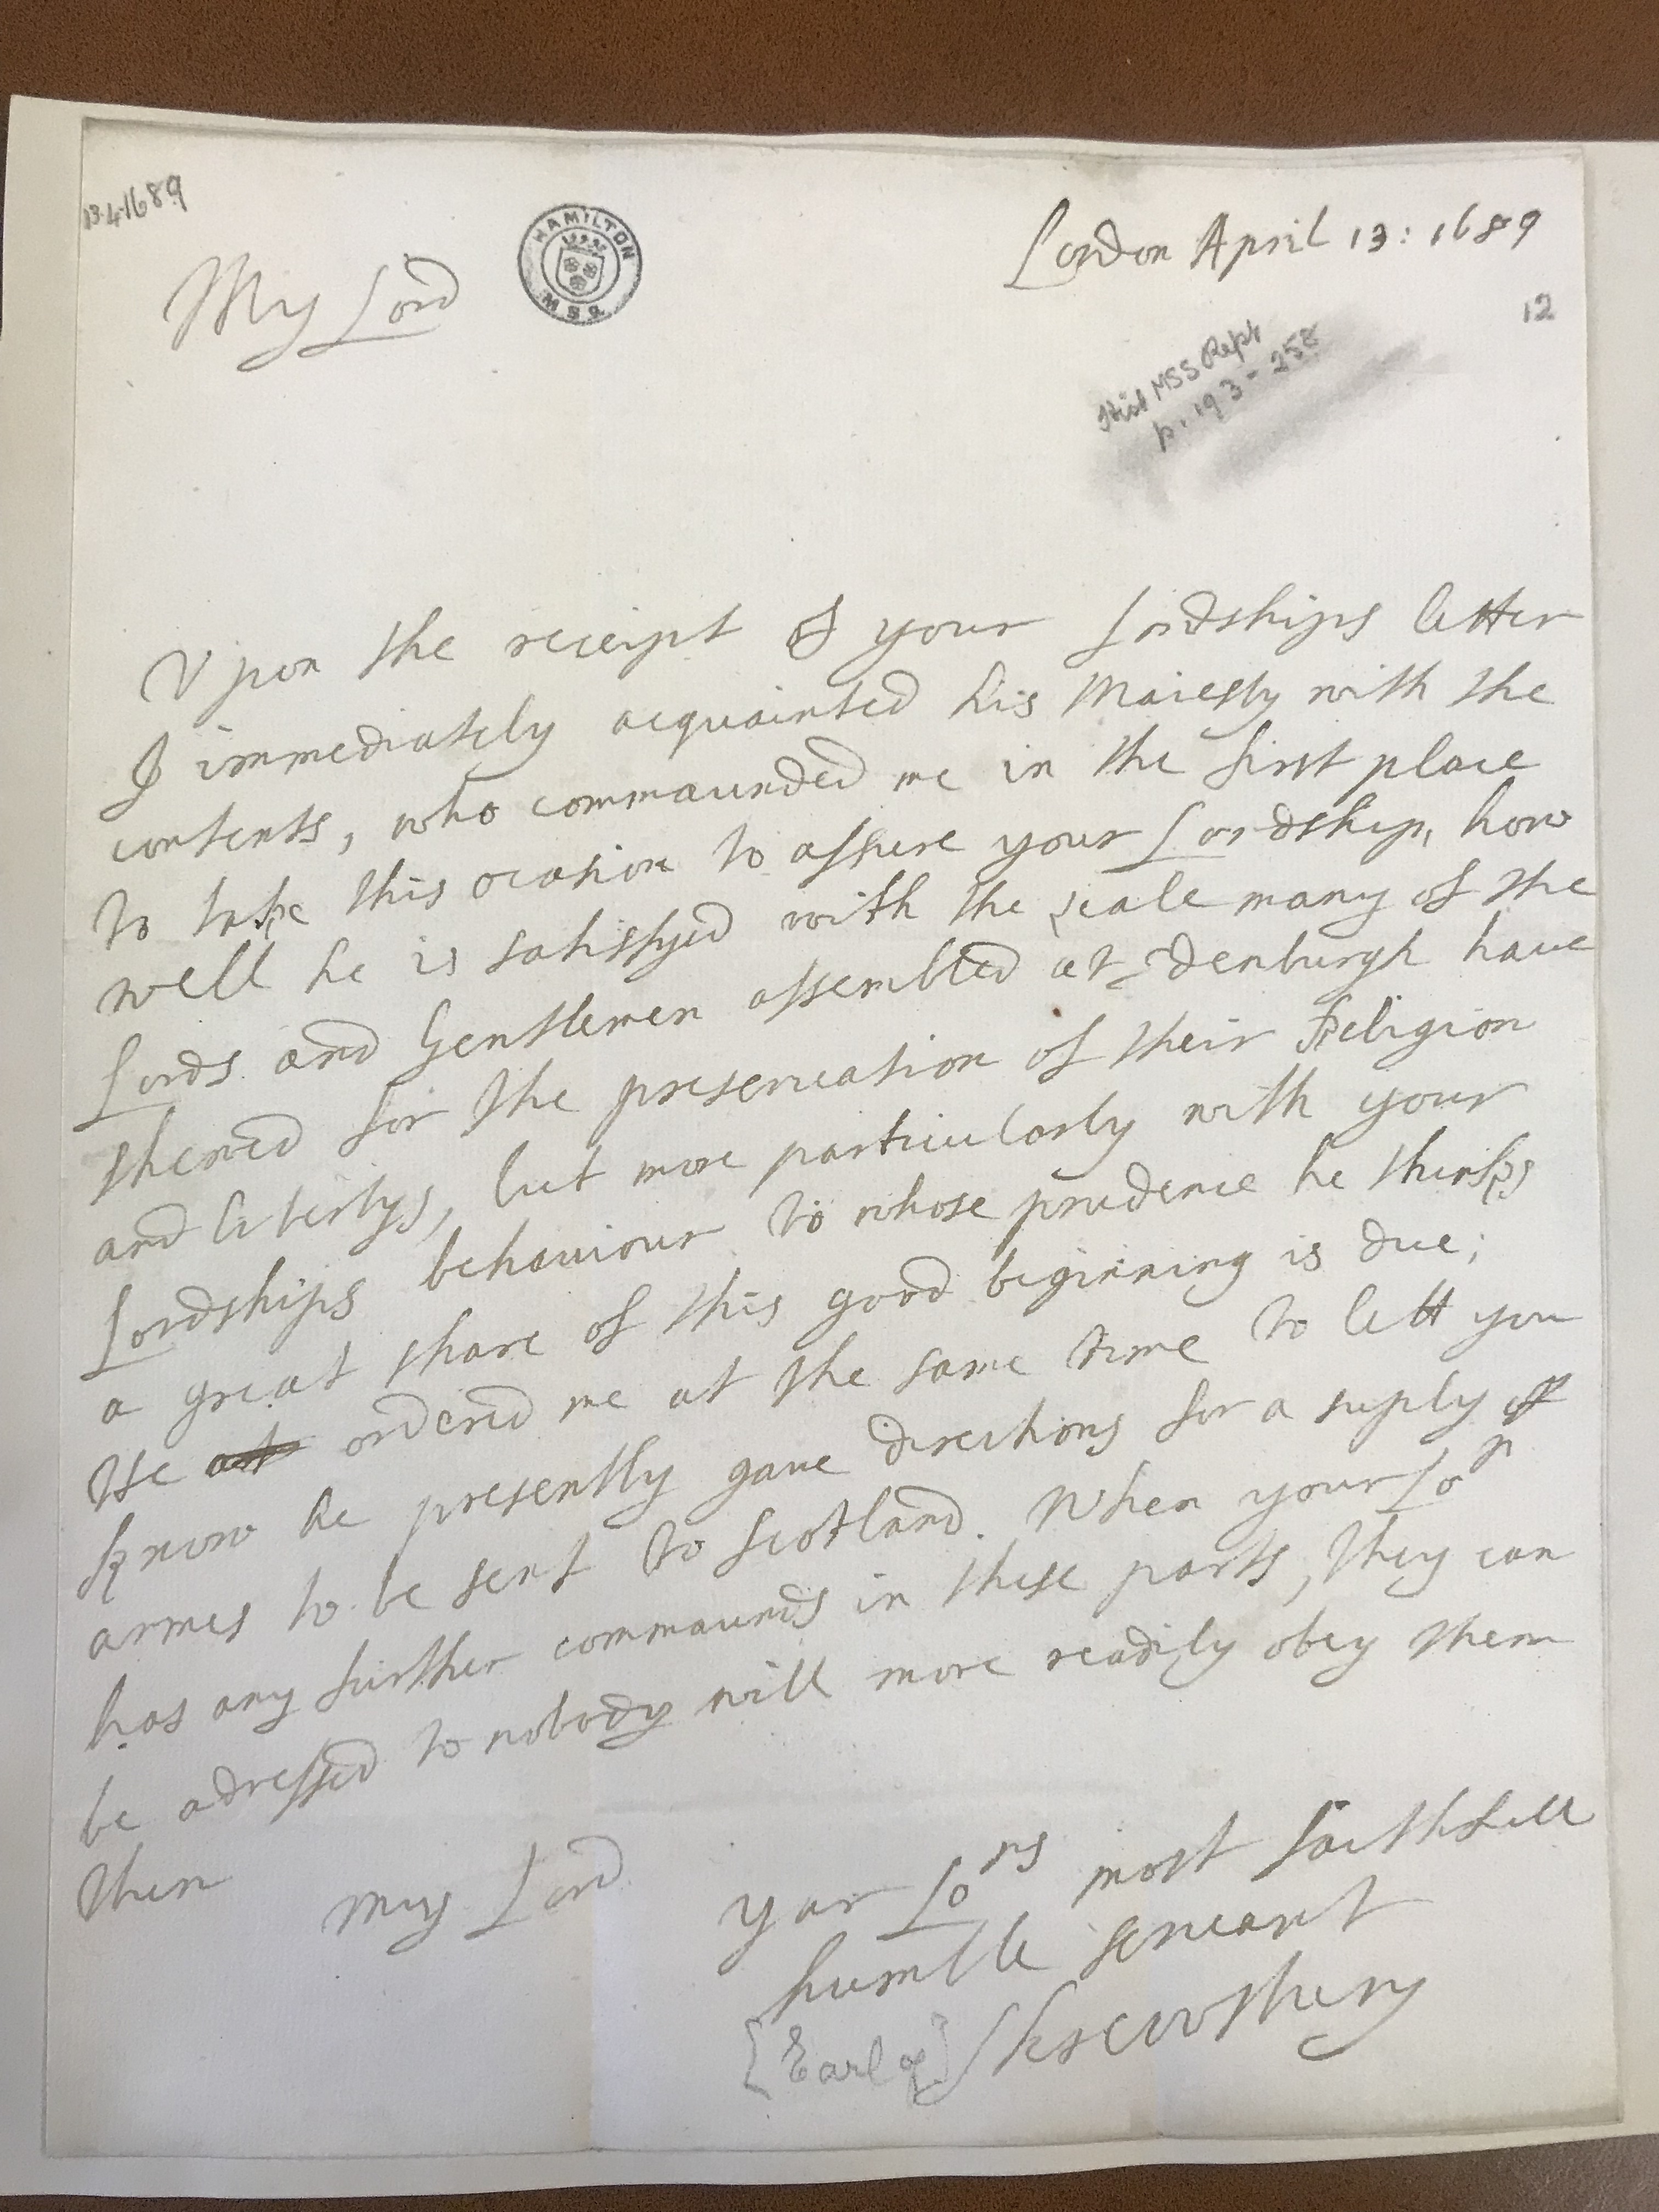 13.4.1689
HAMILTON
MSS.
London April 13: 1689
My Lord
12
Hist MSS Rept
p. 193 - 258
Vpon the receipt of your Lordships letter
I immediately acquainted his Maiesty with the
contents, who commaunded me in the first place
to take this ocasion to assure your Lordship, how
well he is satisfyed with the zeale many of the
Lords and Gentlemen assembled at Edenburgh haue
shewed for the preseruation of their Religion
and libertys, but more particularly with your
Lordships behauiour to whose prudence he thinks
a great share of this good beginning is due;
He at ordered me at the same time to lett you
know he presently gaue directions for a suply of
armes to be sent to Scotland. When your Lop
has any further commaunds in these parts, they can
be adressed to nobody will more readily obey them
then
My Lord
your Lops most faithfull
humble seruant
[Earl of] Shrewsbury